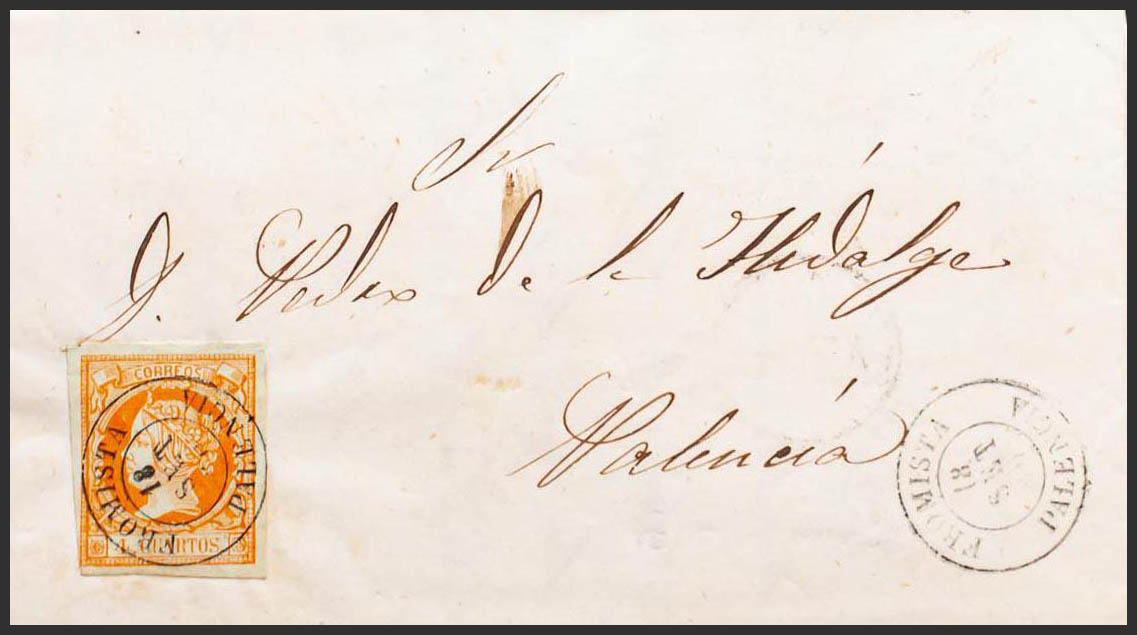 Sr
D. de la Hidalga
Valencia
CORREOS
4 CUARTOS
FROMISTA
PALENCIA
18
SET
FROMISTA
PALENCIA
18
SET